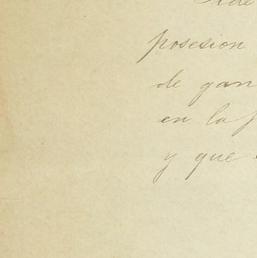 posesion
de gan
en la p
y que